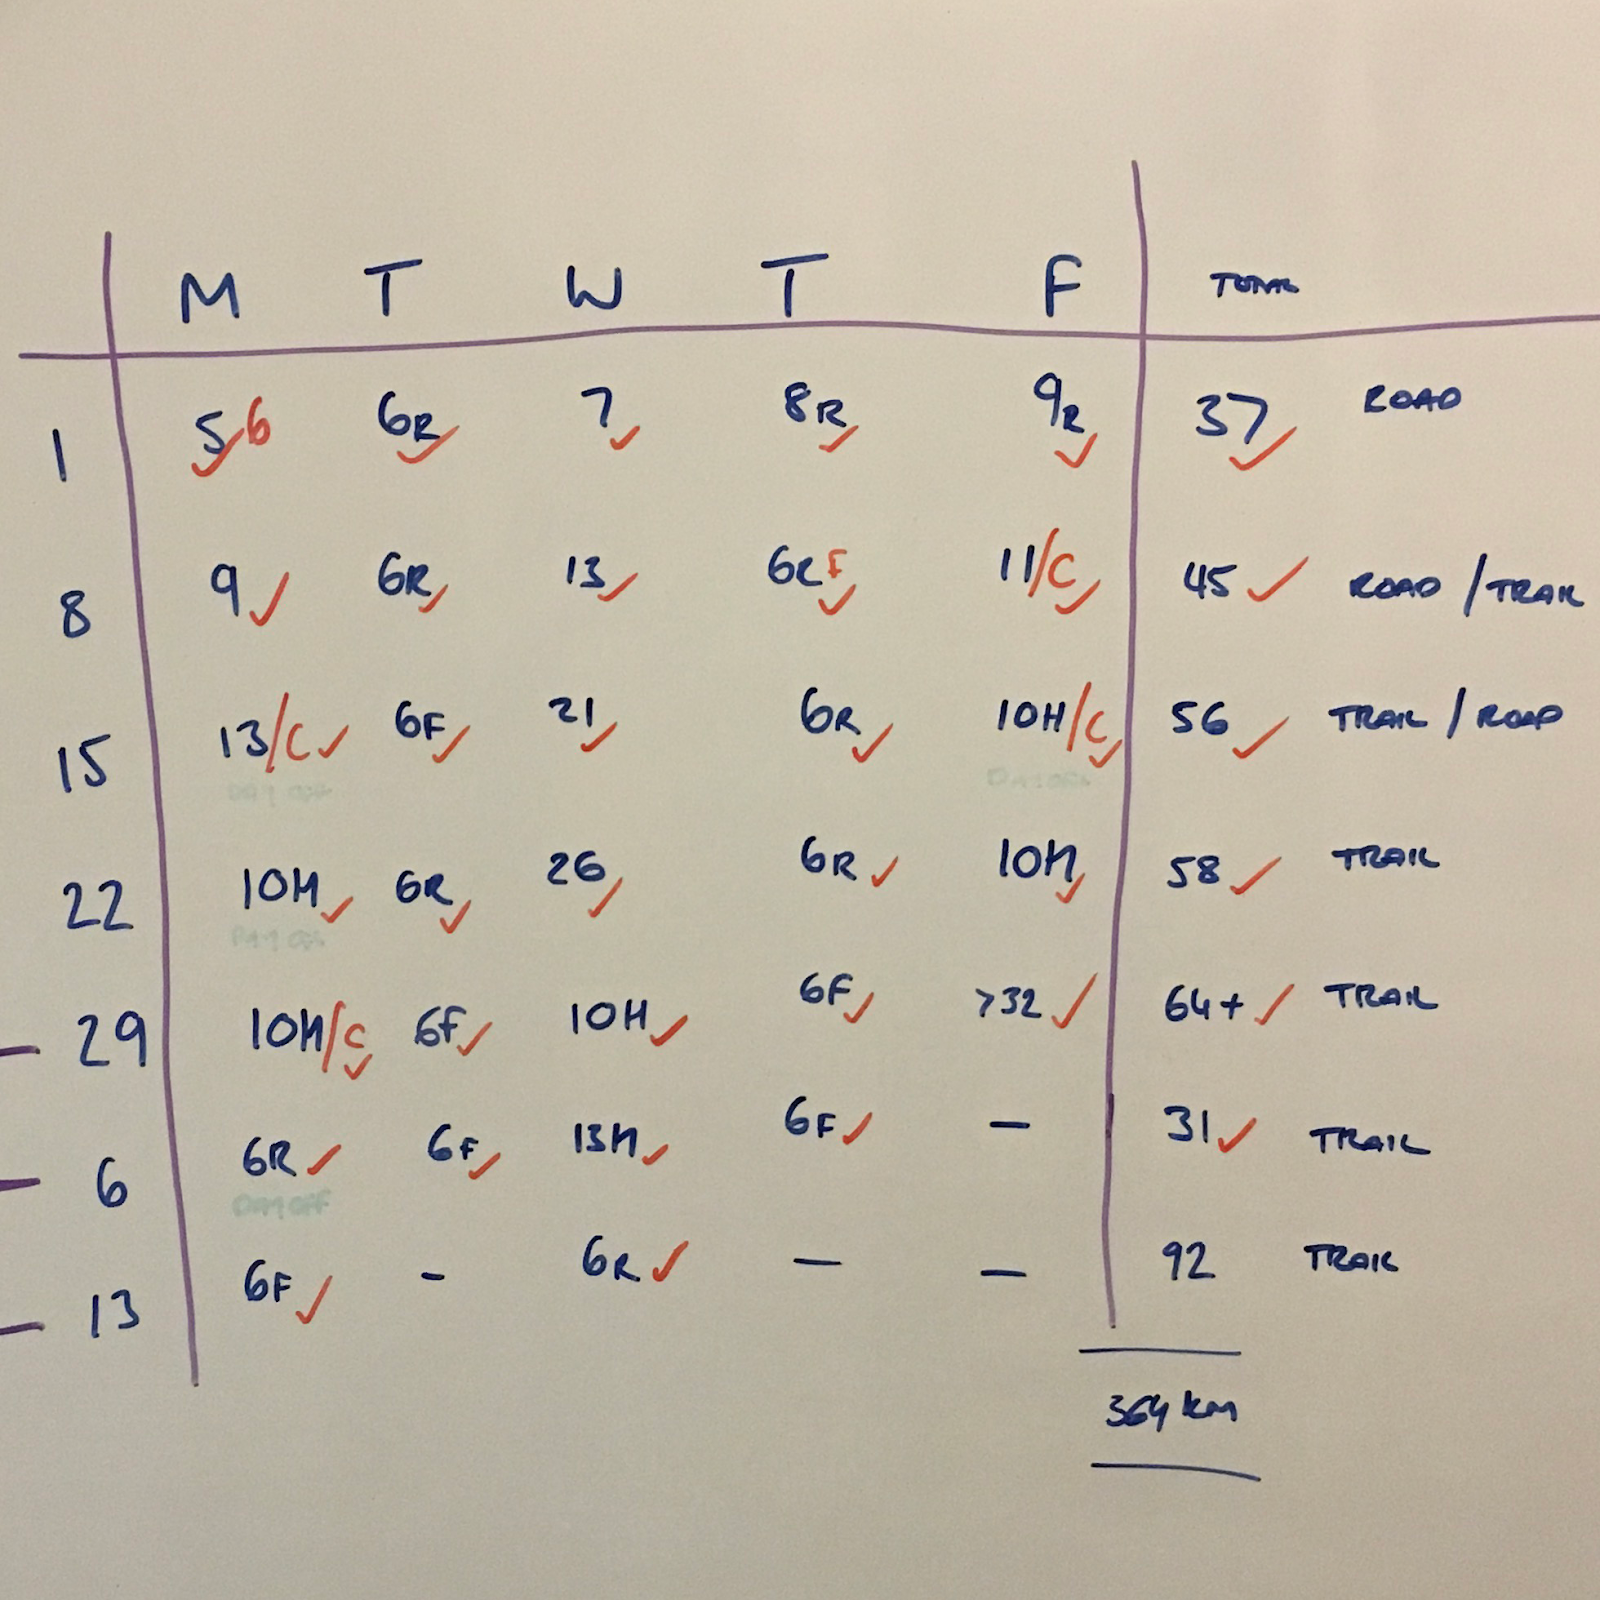 M T W T F TOTAL
1 5 6 6R 7 8R 9R 37 ROAD
8 9 6R 13 6R F 11/C 45 ROAD/TRAIL
15 13/C 6F 21 6R 10H/C 56 TRAIL/ROAD
DAY OFF DAY OFF
22 10H 6R 26 6R 10H 58 TRAIL
DAY OFF
29 10H/C 6F 10H 6F >32 64+ TRAIL
6 6R 6F 13H 6F – 31 TRAIL
DAY OFF
13 6F - 6R – – 92 TRAIL
364 km